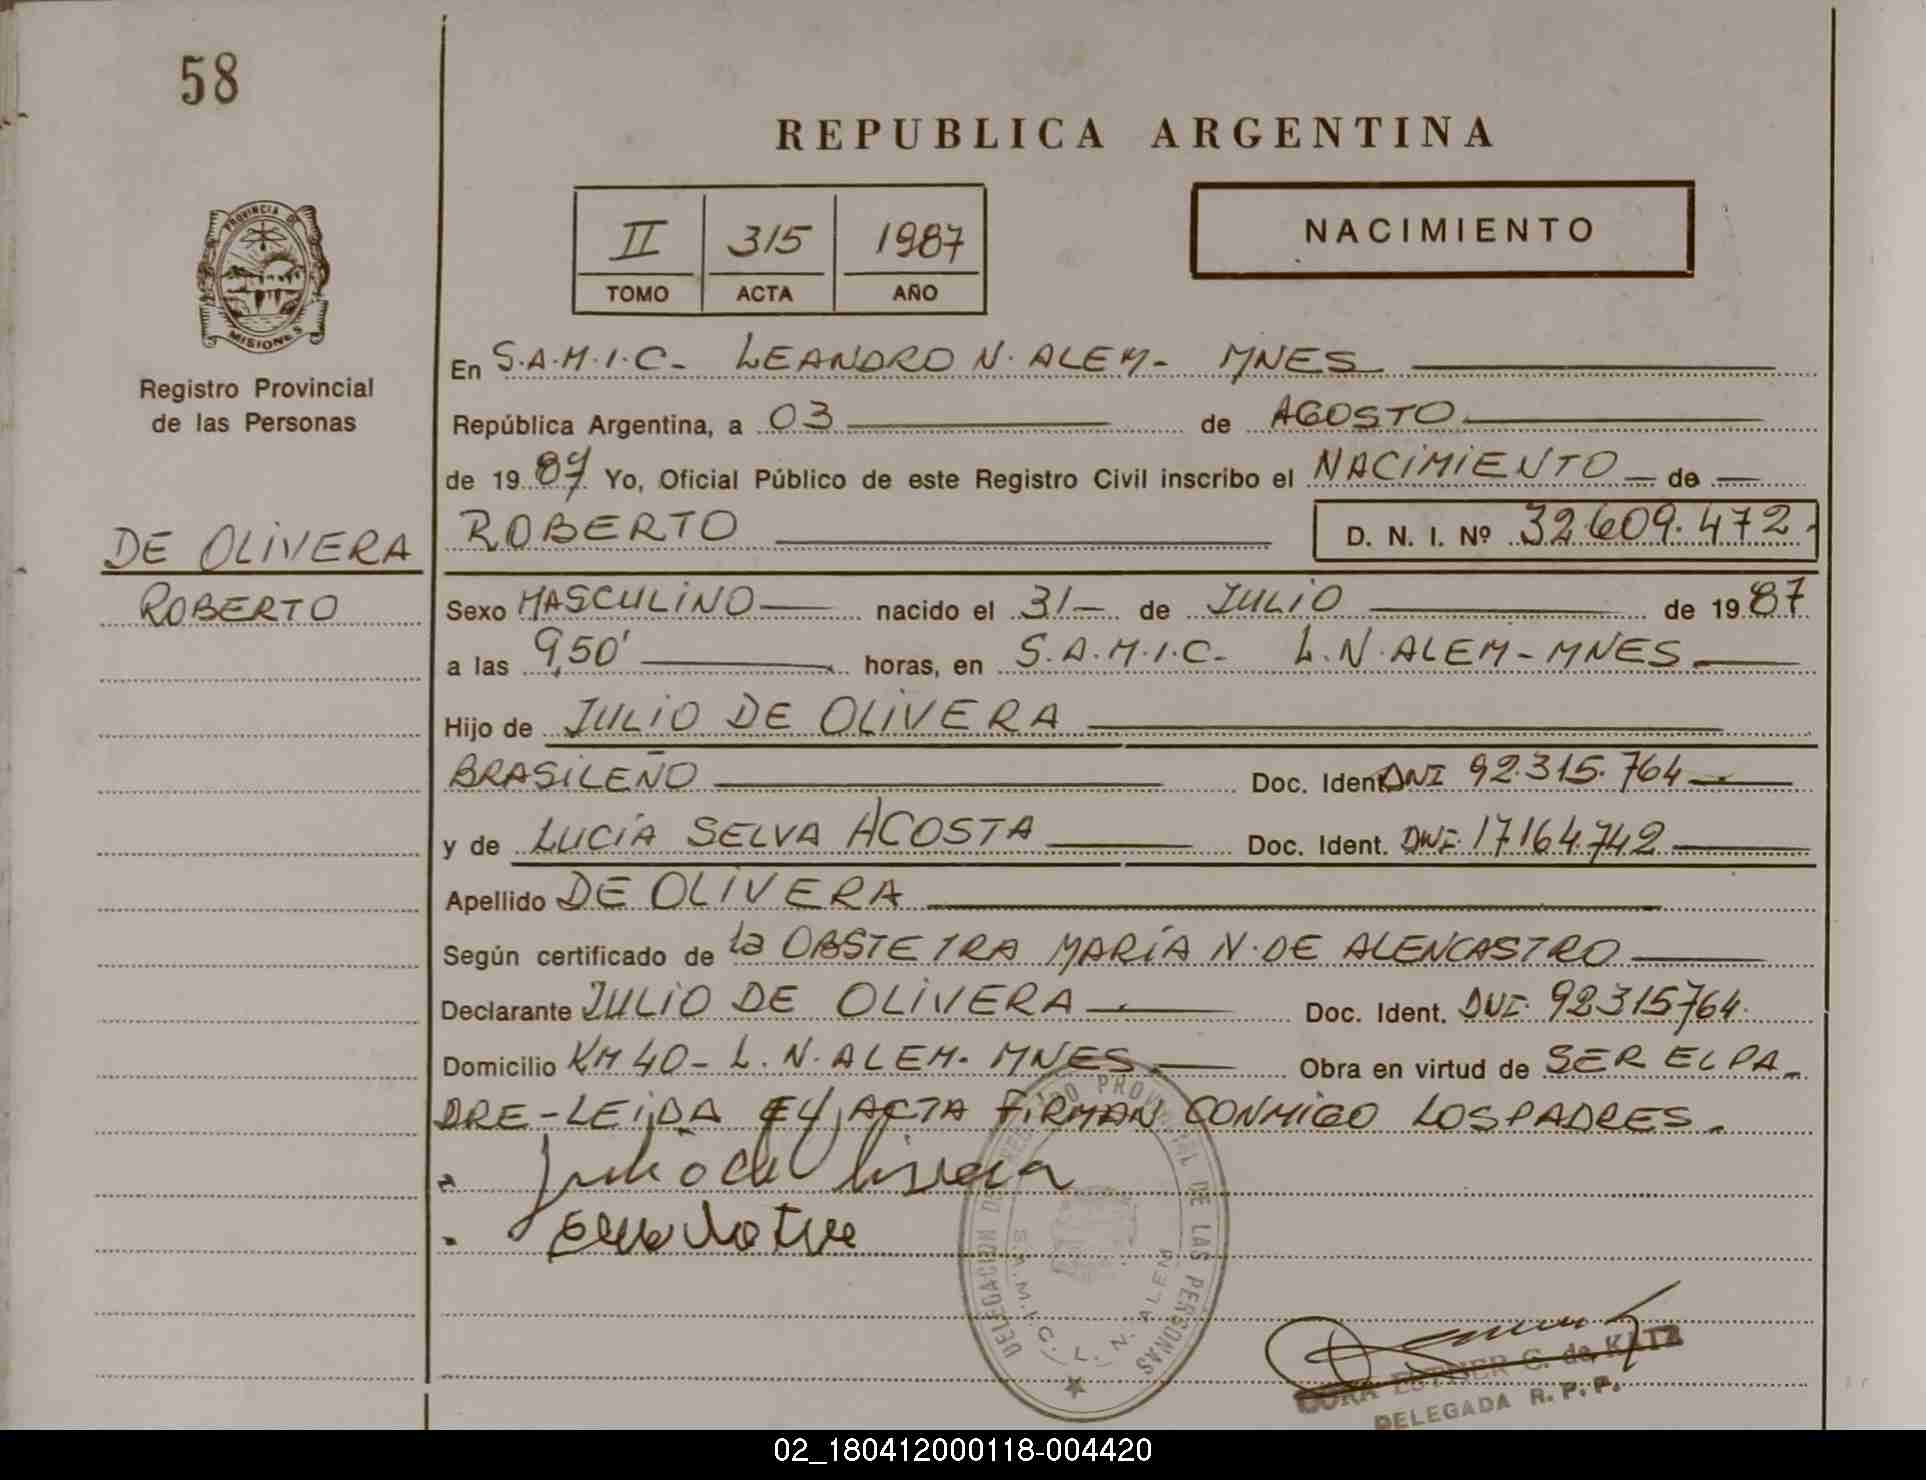 58
REPUBLICA ARGENTINA
II 315 1987
TOMO ACTA AÑO
NACIMIENTO
PROVINCIA DE
MISIONES
Registro Provincial
de las Personas
En S.A.M.I.C- LEANDRO N. ALEM- MNES
República Argentina, a 03 de AGOSTO
de 1987 Yo, Oficial Público de este Registro Civil inscribo el NACIMIENTO de
DE OLIVERA
ROBERTO
ROBERTO D. N. I. Nº 32.609.472.
Sexo MASCULINO nacido el 31 de JULIO de 1987
a las 9,50' horas, en S.A.M.I.C- L.N. ALEM-MNES
Hijo de JULIO DE OLIVERA
BRASILEÑO Doc. Ident. DNI 92.315.764
y de LUCÍA SELVA ACOSTA Doc. Ident. DNI. 17164.742
Apellido DE OLIVERA
Según certificado de la OBSTETRA MARÍA N. DE ALENCASTRO
Declarante JULIO DE OLIVERA Doc. Ident. DNI. 92315764.
Domicilio KM 40- L.N. ALEM- MNES Obra en virtud de SER EL PA-
DRE-LEIDA EL ACTA FIRMAN CONMIGO LOS PADRES.
DELEGACION DEL REGISTRO PROVINCIAL DE LAS PERSONAS
S.A.M.I.C. L. N. ALEM
ESTHER G. de KATZ
DELEGADA R. P. P.
02_180412000118-004420